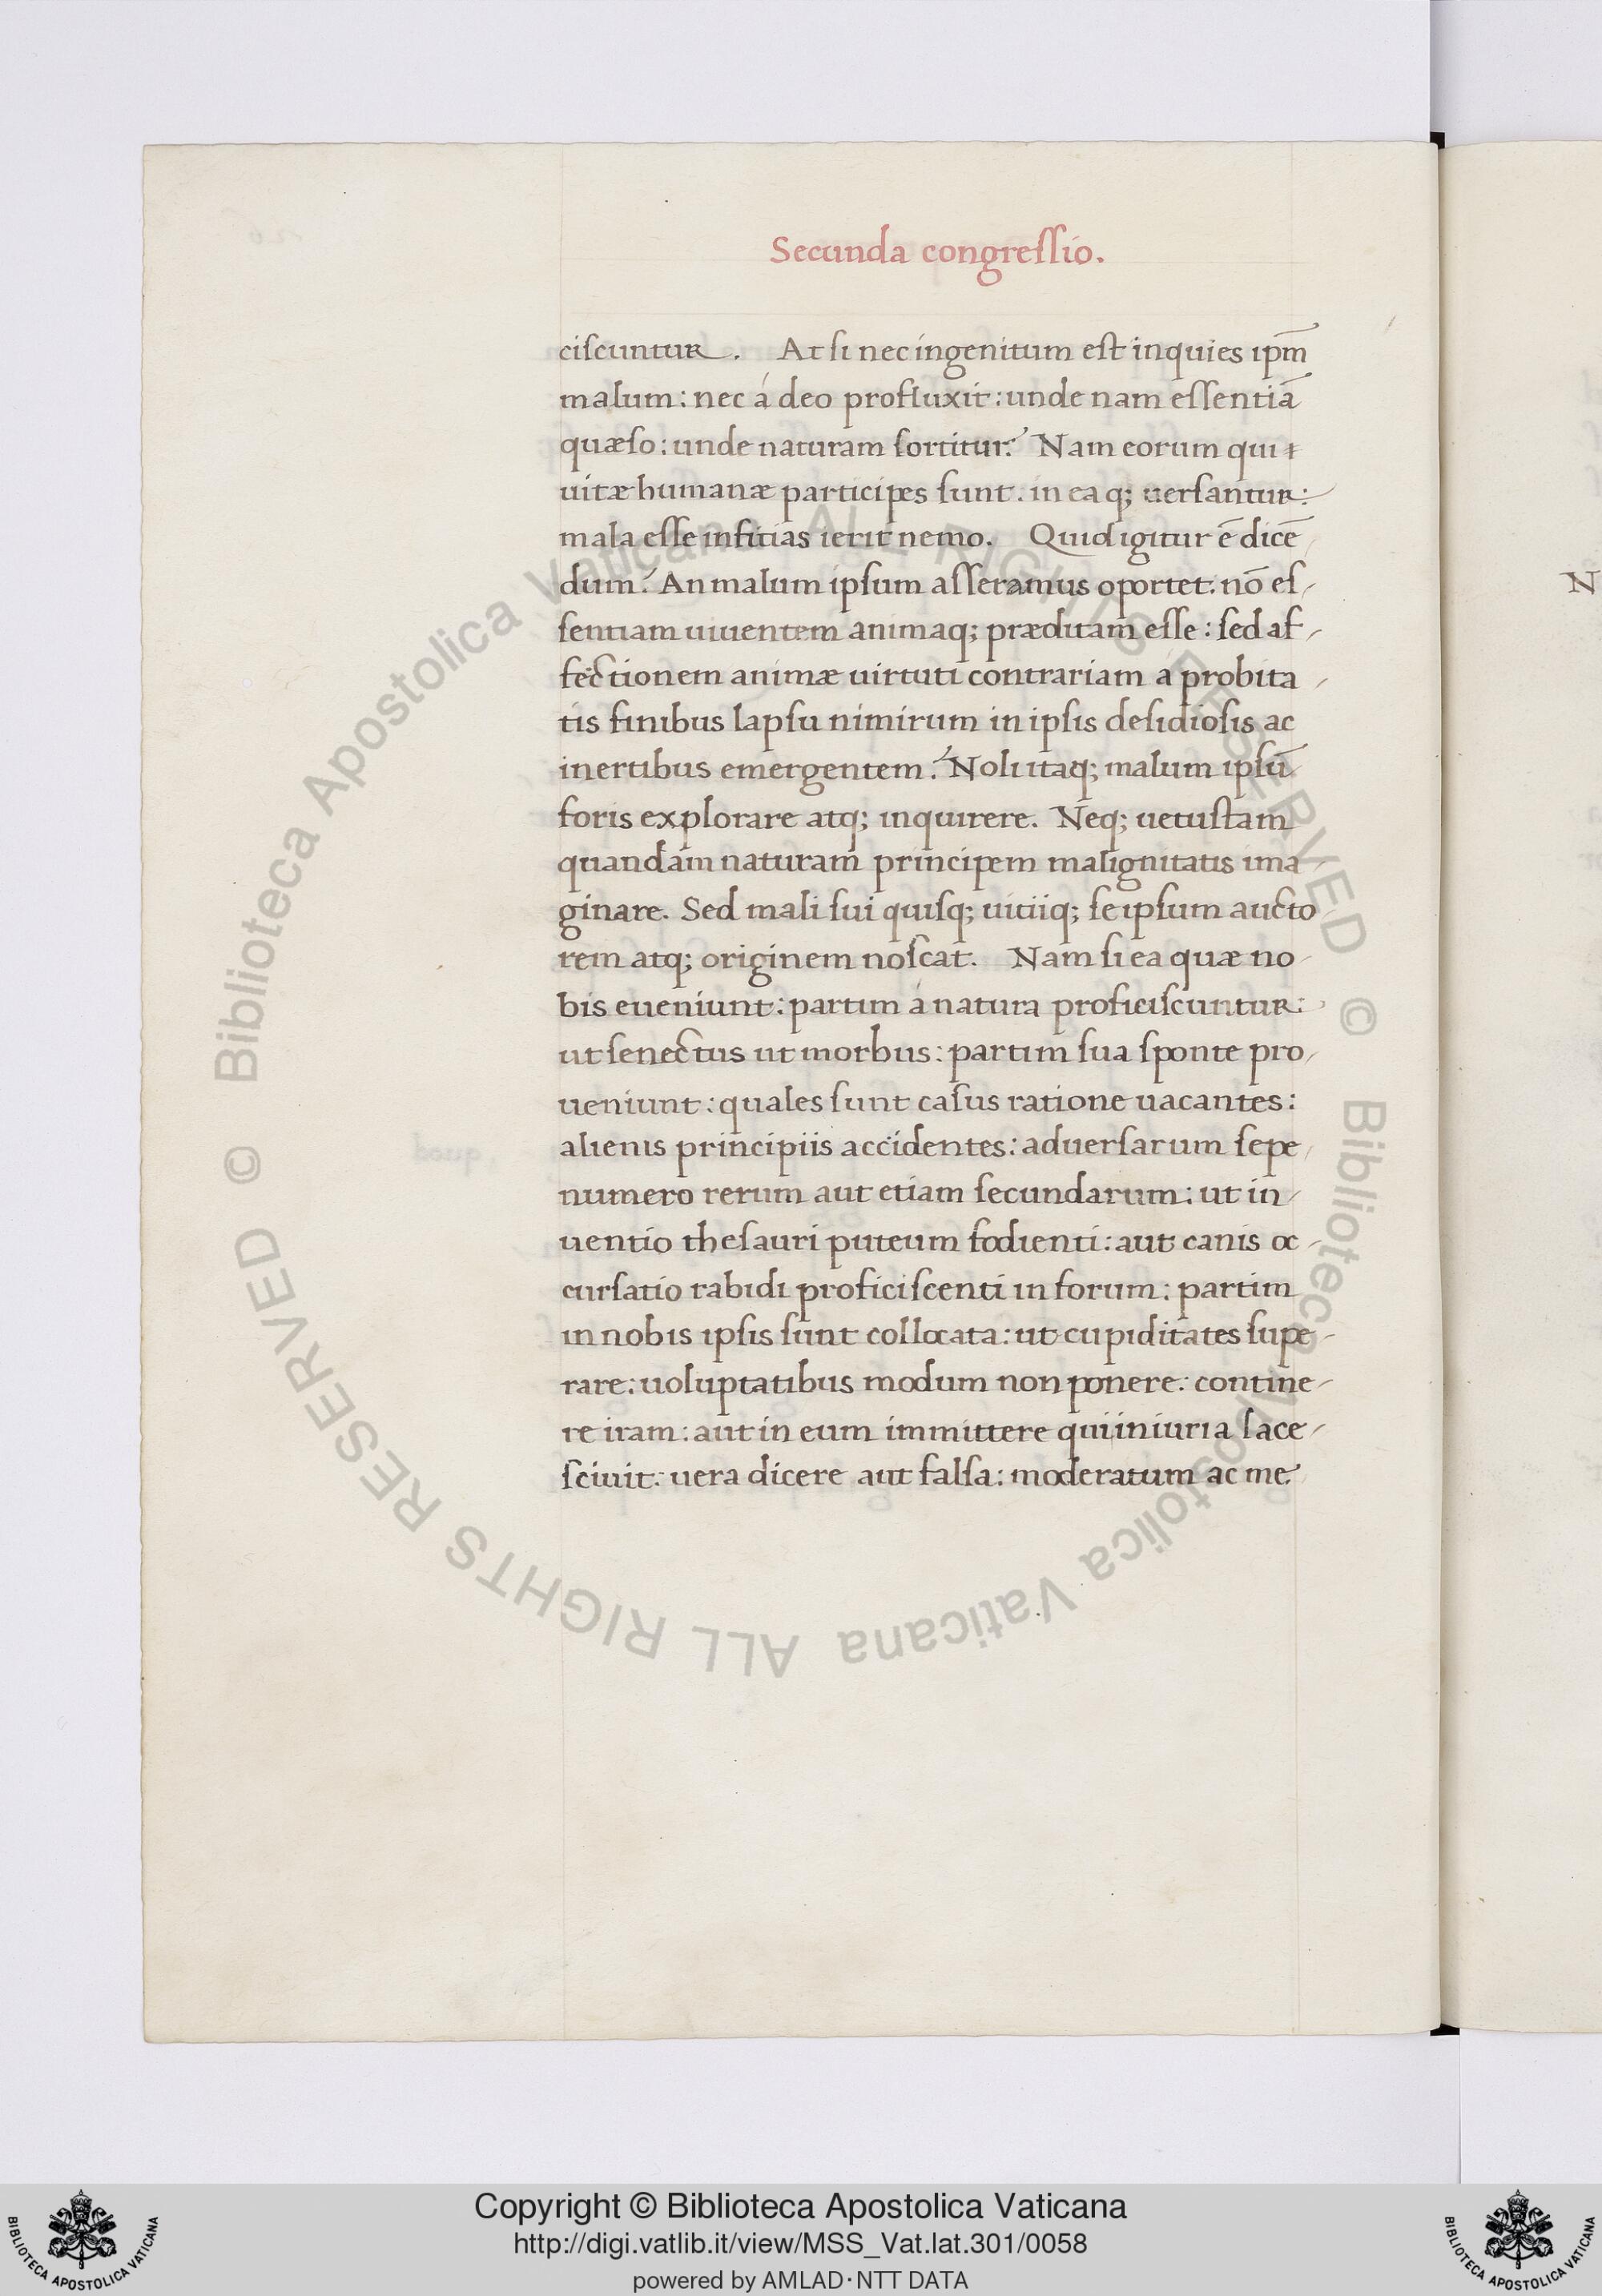 Secunda congreſſio.
ciſcuntur. At ſi nec ingenitum eſt inquies ip̄m
malum: nec á deo profluxit: unde nam eſſentiā
quæſo: unde naturam ſortitur? Nam eorum qui
uitæ humanæ participes ſunt. in ea q; uerſantur:
mala eſſe infitias ierit nemo. Quid igitur ē dicē
dum? An malum ipſum aſſeramus oportet. nō eſ-
ſentiam uiuentem animaq; præditam eſſe: ſed af-
fectionem animæ uirtuti contrariam á probita-
tis finibus lapſu nimirum in ipſis deſidioſis ac
inertibus emergentem? Noli itaq; malum ipſū
foris explorare atq; inquirere. Neq; uetuſtam
quandam naturam principem malignitatis ima-
ginare. Sed mali ſui quiſq; uitiiq; ſe ipſum aucto
rem atq; originem noſcat. Nam ſi ea quæ no-
bis eueniunt: partim á natura proficiſcuntur:
ut ſenectus ut morbus: partim ſua ſponte pro-
ueniunt: quales ſunt caſus ratione uacantes:
alienis principiis accidentes: aduerſarum ſepe-
numero rerum aut etiam ſecundarum: ut in-
uentio theſauri puteum fodienti: aut canis oc-
curſatio rabidi proficiſcenti in forum: partim
in nobis ipſis ſunt collocata: ut cupiditates ſupe-
rare: uoluptatibus modum non ponere: contine-
re iram: aut in eum immittere qui iniuria lace-
ſciuit: uera dicere aut falſa: moderatum ac me
N
© Biblioteca Apostolica Vaticana ALL RIGHTS RESERVED
© Biblioteca Apostolica Vaticana ALL RIGHTS RESERVED
Copyright © Biblioteca Apostolica Vaticana
http://digi.vatlib.it/view/MSS_Vat.lat.301/0058
powered by AMLAD·NTT DATA
BIBLIOTECA APOSTOLICA VATICANA
BIBLIOTECA APOSTOLICA VATICANA